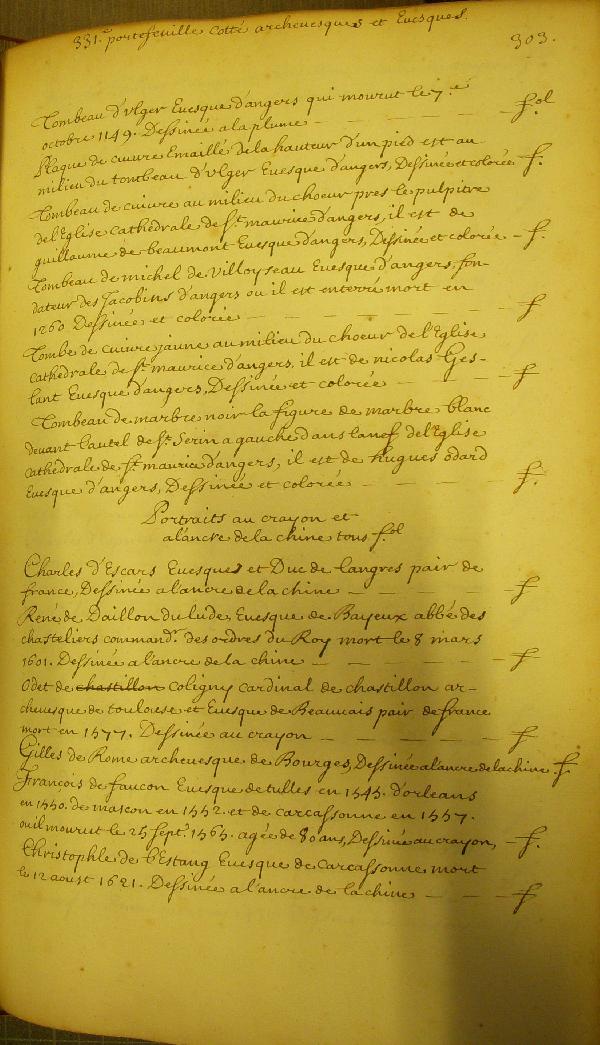 331.e portefeuille cotté archeuesques et Euesques.
303.
Tombeau d'Vlger Euesque d'angers qui mourut le 7.e
octobre 1149. Dessinée a la plume — fol
Plaque de cuiure Emaillé de la hauteur d'un pied est au
milieu du tombeau d'Vlger Euesque d'angers, Dessinée et colorée f.
Tombeau de cuiure au milieu du choeur pres le pulpitre
de l'Eglise cathedrale de St. maurice d'angers, il est de
guillaume de beaumont Euesque d'angers, Dessinée et colorée — f.
Tombeau de michel de Villoyseau Euesque d'angers, fon-
dateur des Jacobins d'angers ou il est enterré mort en
1260 Dessinée et colorée — f
Tombe de cuiure jaune au milieu du choeur de l'Eglise
cathedrale de St. maurice d'angers, il est de nicolas Ges-
lant Euesque d'angers, Dessinée et colorée — f
Tombeau de marbre noir la figure de marbre blanc
deuant l'autel de St. Serin a gauche dans la nef de l'Eglise
cathedrale de St. maurice d'angers, il est de hugues odard
Euesque d'angers, Dessinée et colorée — f.
Portraits au crayon et
a l'ancre de la chine tous fol
Charles d'Escars Euesques et Duc de langres pair de
france, Dessinée a l'ancre de la chine — f
René de Daillon du lude, Euesque de Bayeux abbé des
chasteliers command.r des ordres du Roy mort le 8 mars
1601. Dessinée a l'ancre de la chine — f
Odet de chastillon coligny cardinal de chastillon ar-
cheuesque de toulouse et Euesque de Beauuais pair de france
mort en 1577. Dessinée au crayon — f
Gilles de Rome archeuesque de Bourges, Dessinée a l'ancre de la chine f
François de faucon Euesque de tulles en 1545. d'orleans
en 1550. de mascon en 1552. et de carcassonne en 1557.
ou il mourut le 25 sept. 1565. agée de 80 ans, Dessinée au crayon, — f.
Christophle de l'Estang Euesque de Carcassonne mort
le 12 aoust 1621. Dessinée a l'ancre de la chine — f